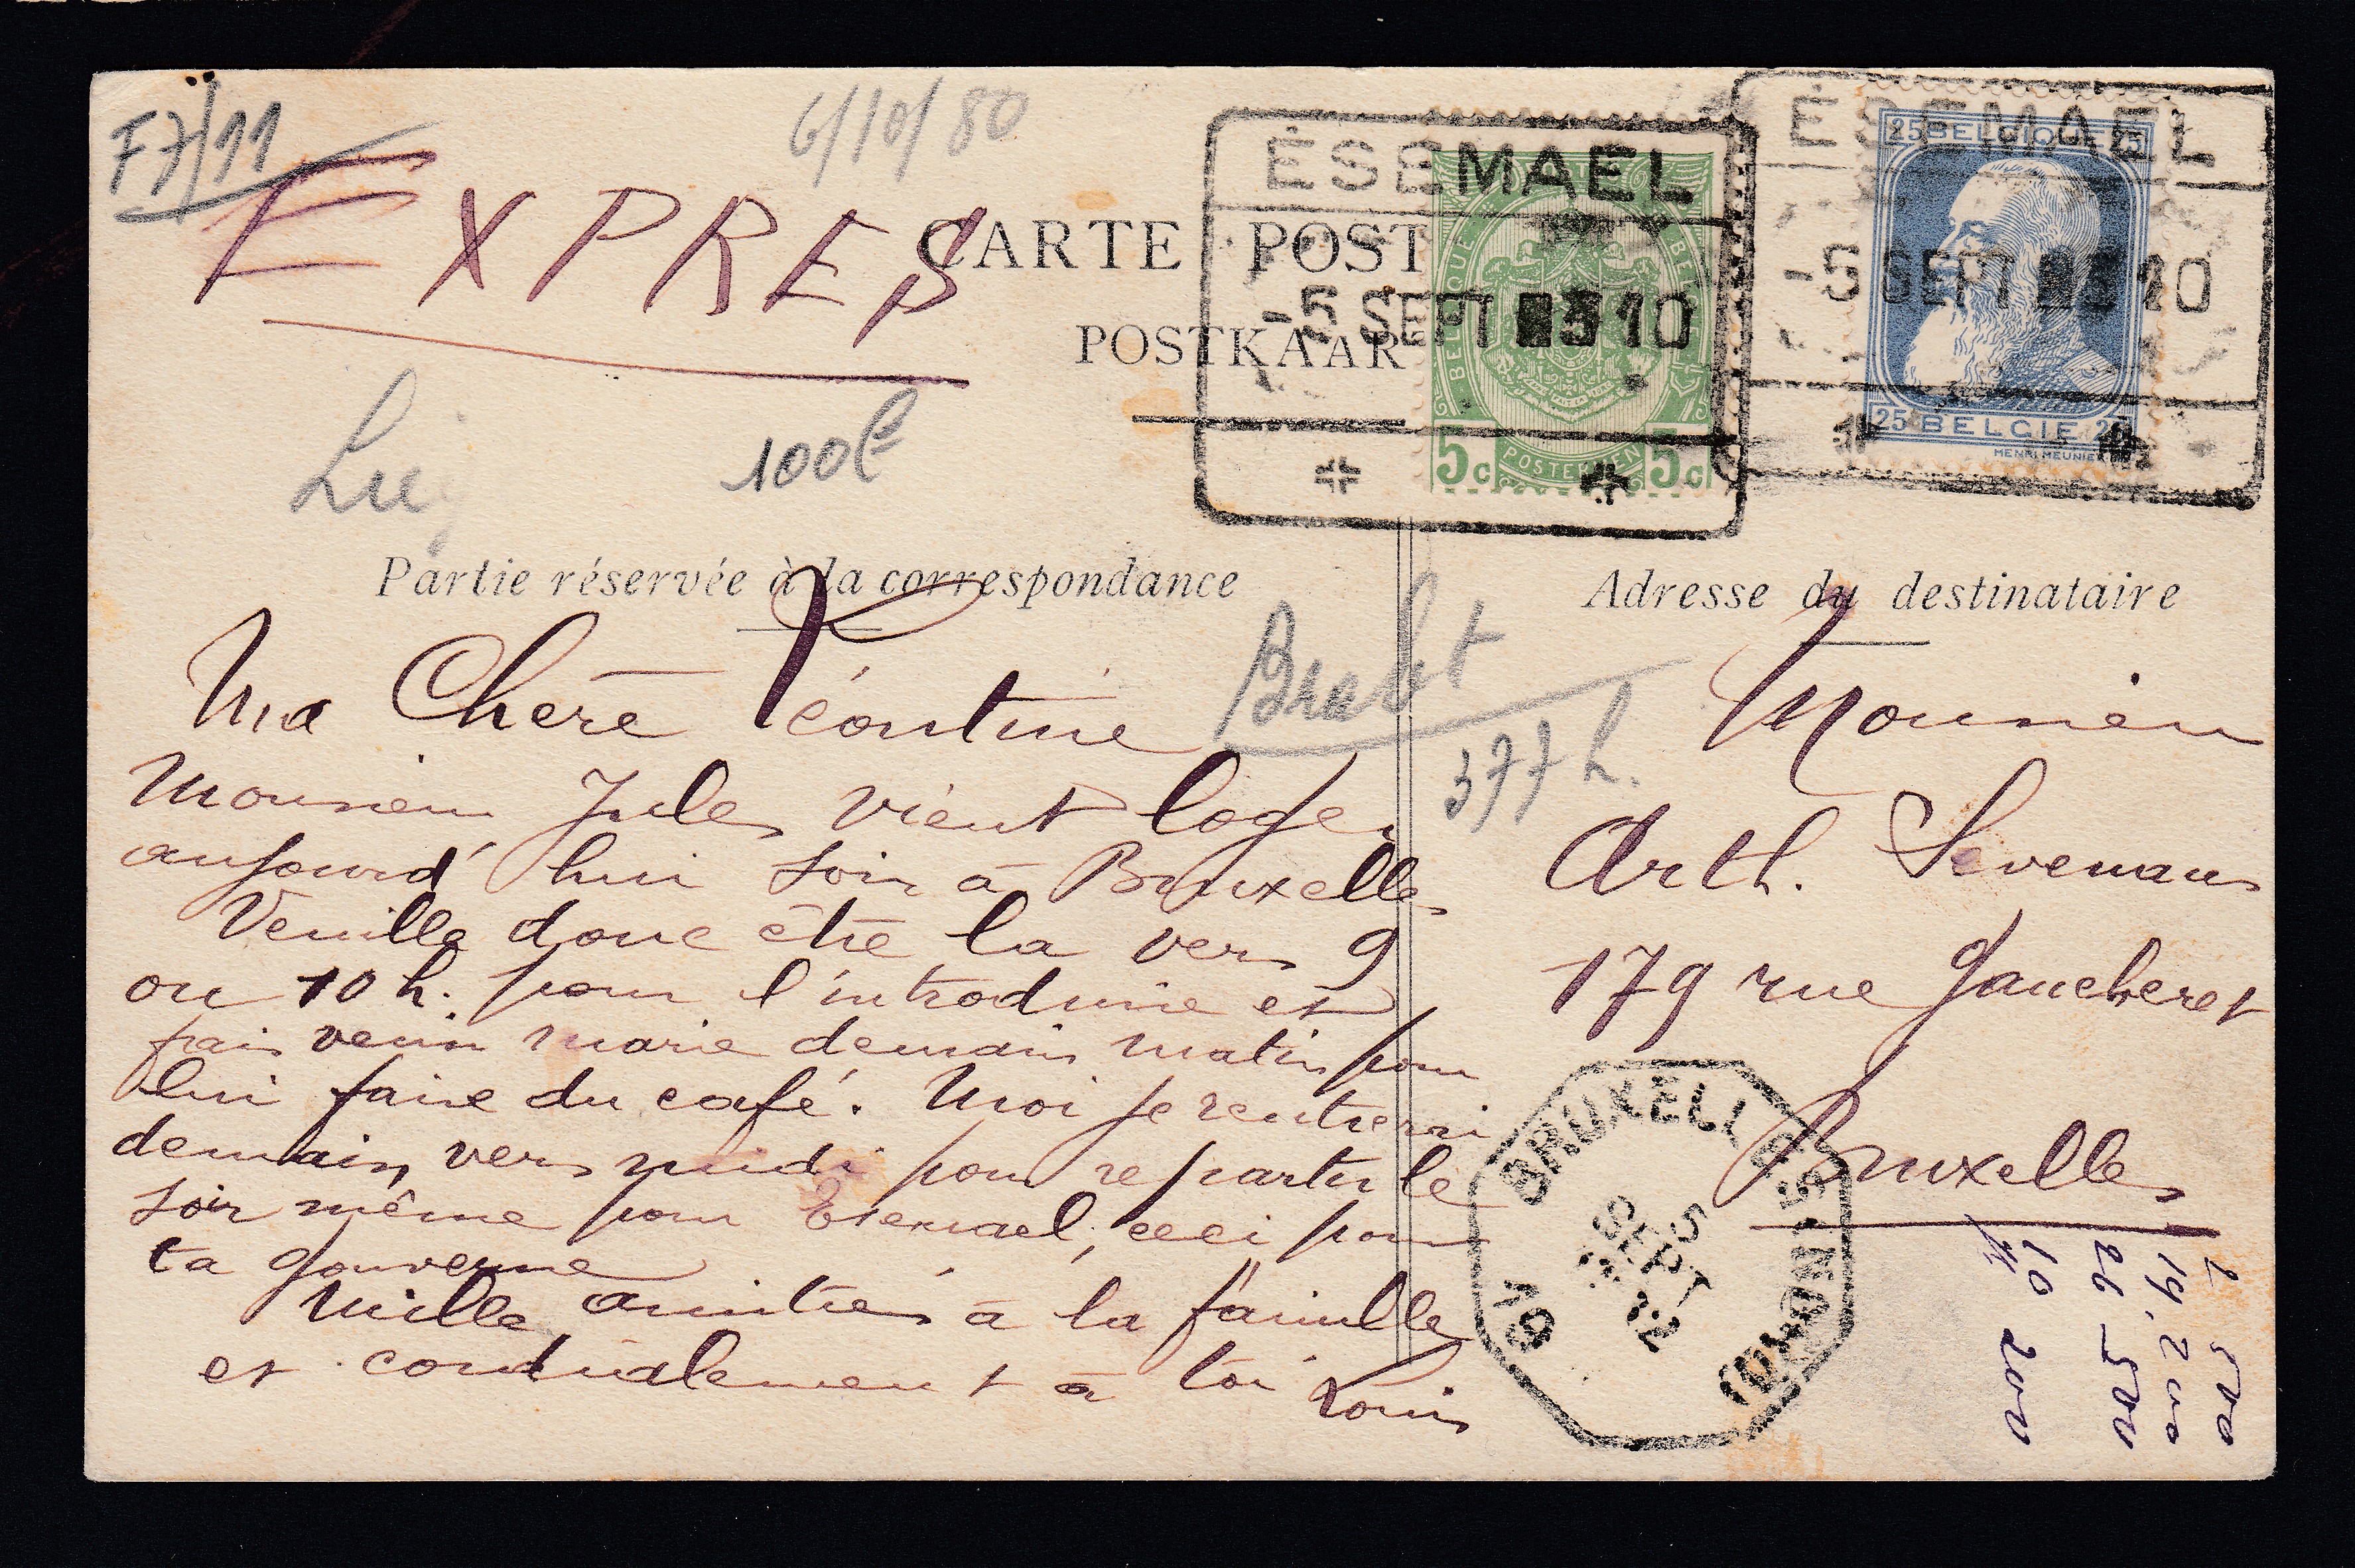 F7/11
6/10/80
EXPRES
CARTE POST
POSTKAAR
ÉSEMAEL
-5 SEPT 3 10
ÉSEMAEL
-5 SEPT 3 10
BELGIQUE
5c POSTERIJEN 5c
25 BELGIQUE 25
25 BELGIE 25
HENRI MEUNIER
100f
Partie réservée à la correspondance
Ma Chère Léontine
Monsieur Jules vient loger
aujourd'hui soir à Bruxelles
Veuille donc être la vers 9
ou 10 h. pour l'introduire et
fais venir marie demain matin pour
lui faire du café. Moi je rentrerai
demain vers midi pour repartir le
soir même pour Esemael, ceci pour
ta gouverne
Mille amitiés à la famille
et cordialement à toi Louis
Brabt
377 h.
Adresse du destinataire
Monsieur
Arth. Sevenans
179 rue Gaucheret
Bruxelles
BRUXELLES
5
SEPT
12
19
500
19.200
26 500
10 200